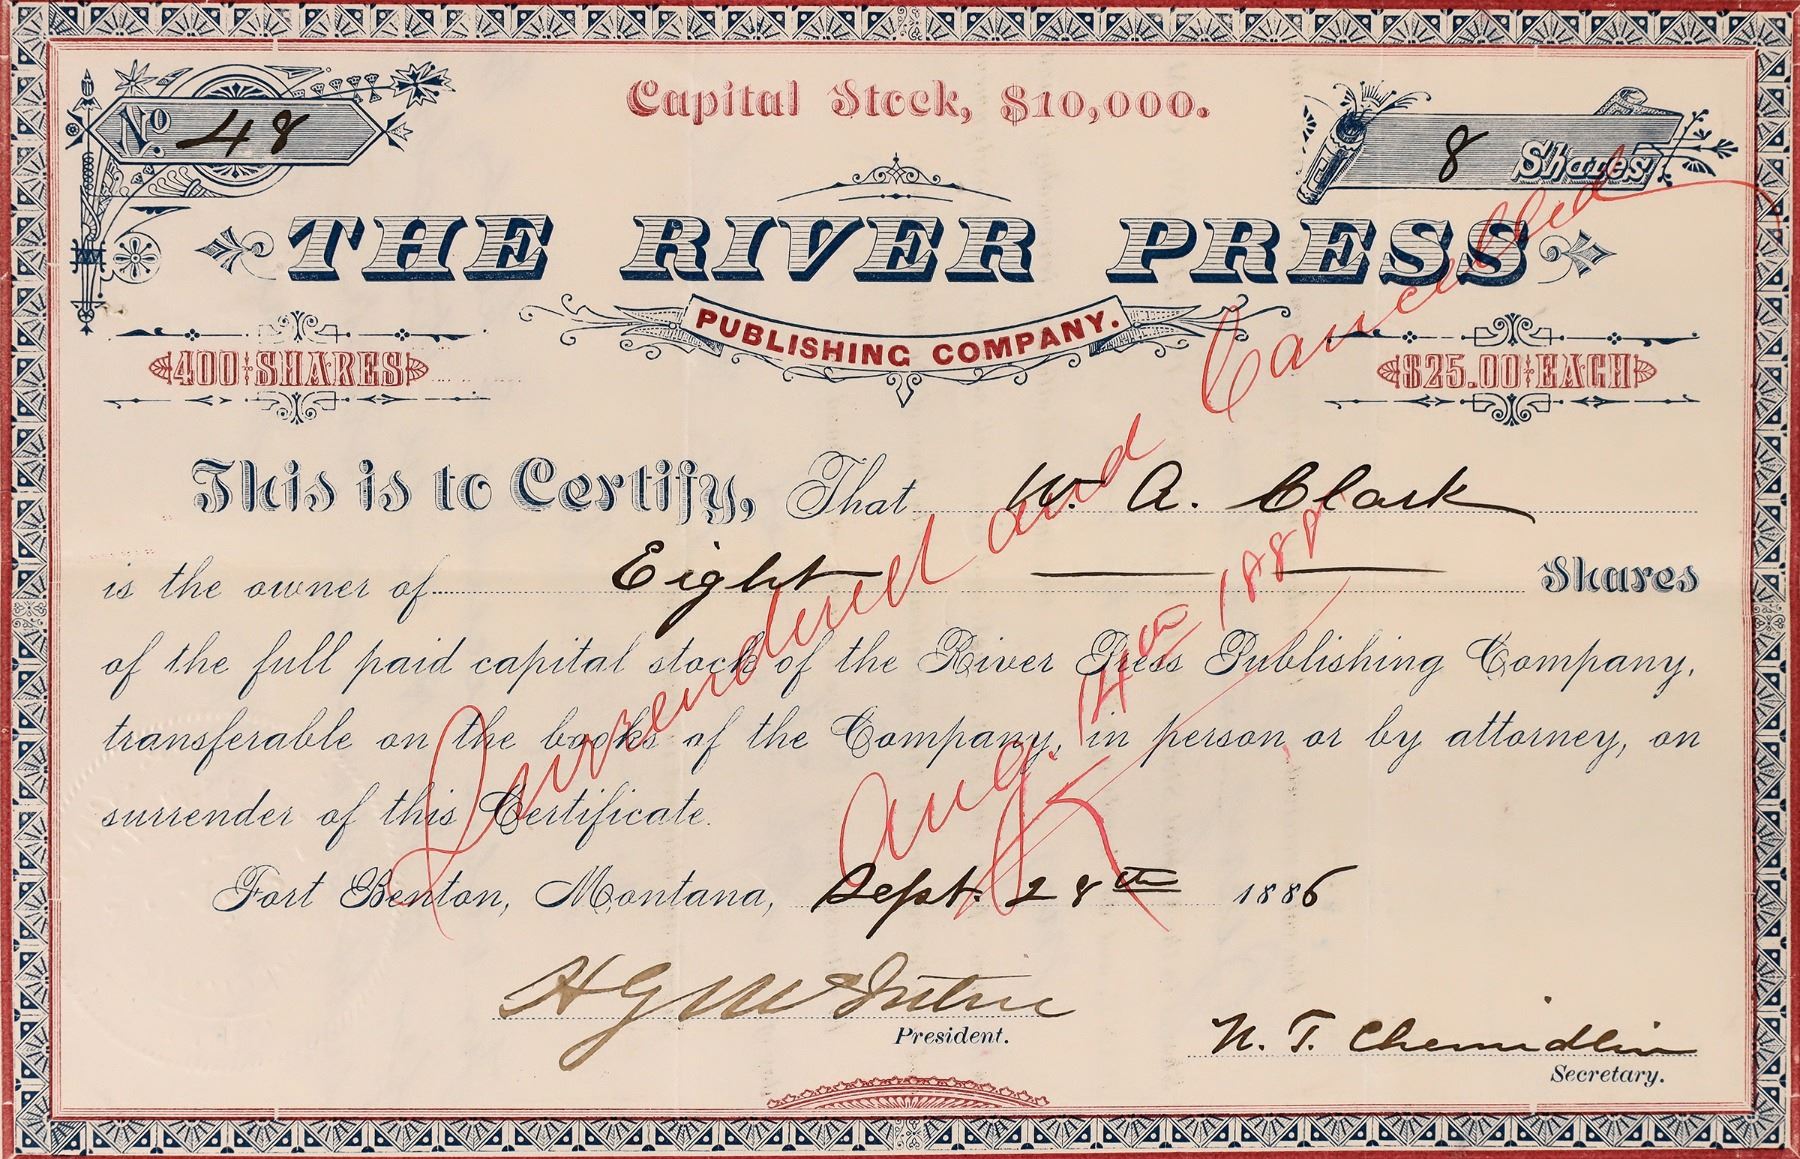 Capital Stock, $10,000.
No. 48
8 Shares
THE RIVER PRESS
PUBLISHING COMPANY.
400 SHARES
$25.00 EACH
This is to Certify, That W. A. Clark
is the owner of Eight Shares
of the full paid capital stock of the River Press Publishing Company,
transferable on the books of the Company, in person or by attorney, on
surrender of this Certificate.
Fort Benton, Montana, Sept. 28th 1886
H G McIntire
President.
N. T. Chemidlin
Secretary.
Surrendered and Cancelled
Aug. 14th